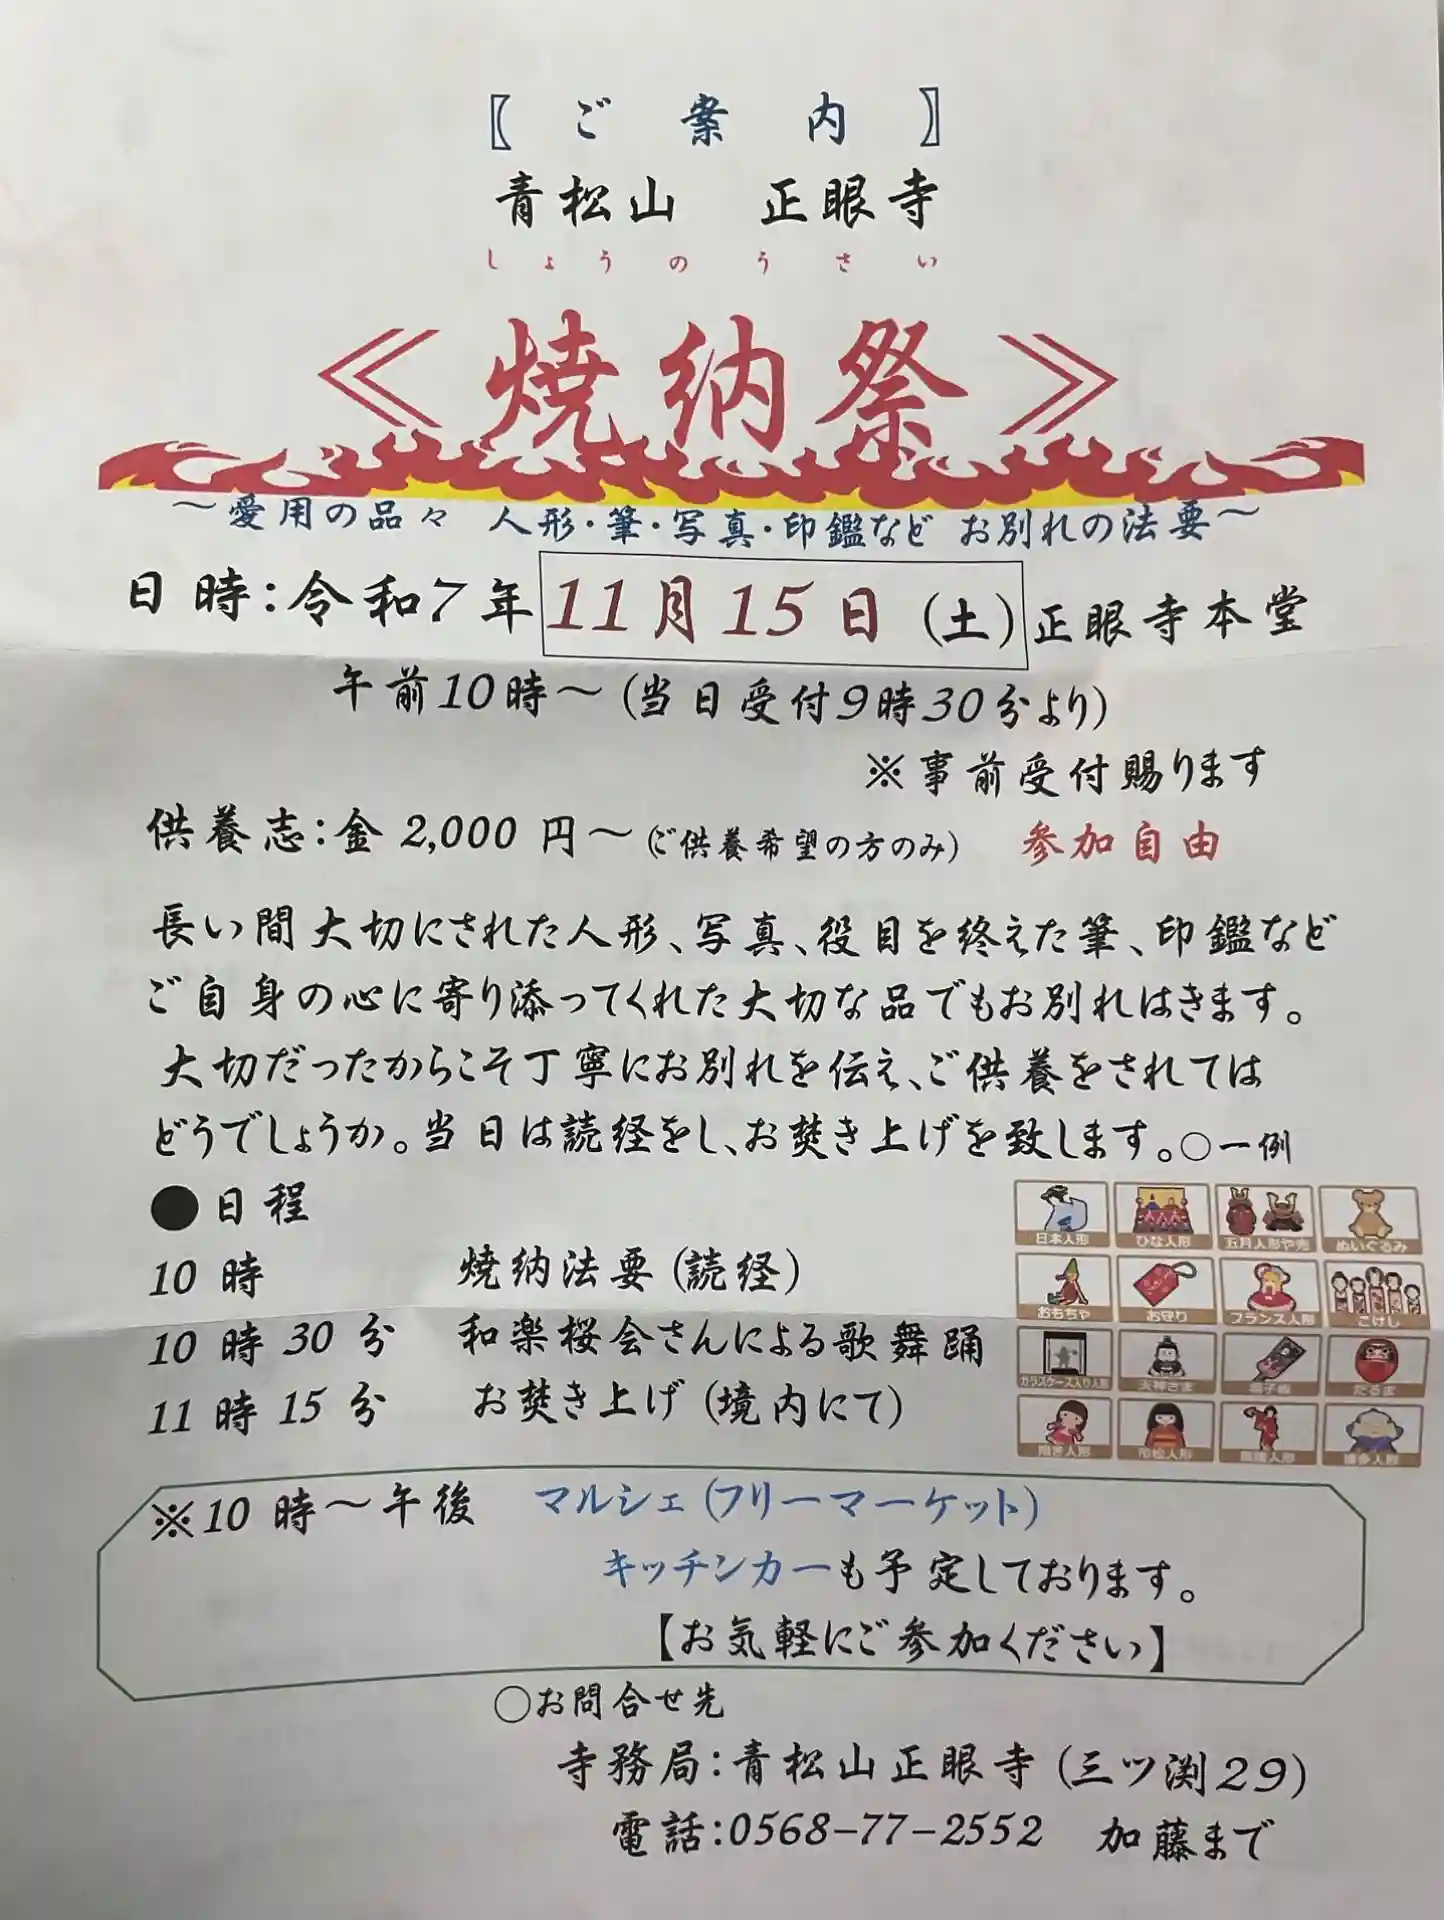 〖 ご 案 内 〗
青松山 正眼寺
しょうのうさい
≪ 焼納祭 ≫
～愛用の品々 人形・筆・写真・印鑑など お別れの法要～
日時：令和7年11月15日（土）正眼寺本堂
午前10時～（当日受付9時30分より）
※事前受付賜ります
供養志：金 2,000 円～（ご供養希望の方のみ） 参加自由
長い間大切にされた人形、写真、役目を終えた筆、印鑑など
ご自身の心に寄り添ってくれた大切な品でもお別れはきます。
大切だったからこそ丁寧にお別れを伝え、ご供養をされては
どうでしょうか。当日は読経をし、お焚き上げを致します。○一例
●日程
10 時 焼納法要（読経）
10 時 30 分 和楽桜会さんによる歌舞踊
11 時 15 分 お焚き上げ（境内にて）
日本人形 ひな人形 五月人形や兜 ぬいぐるみ
おもちゃ お守り フランス人形 こけし
ガラスケース入り人形 天神さま 羽子板 だるま
市松人形 博多人形
※10 時～午後 マルシェ（フリーマーケット）
キッチンカーも予定しております。
【お気軽にご参加ください】
○お問合せ先
寺務局：青松山正眼寺（三ツ渕29）
電話：0568-77-2552 加藤まで